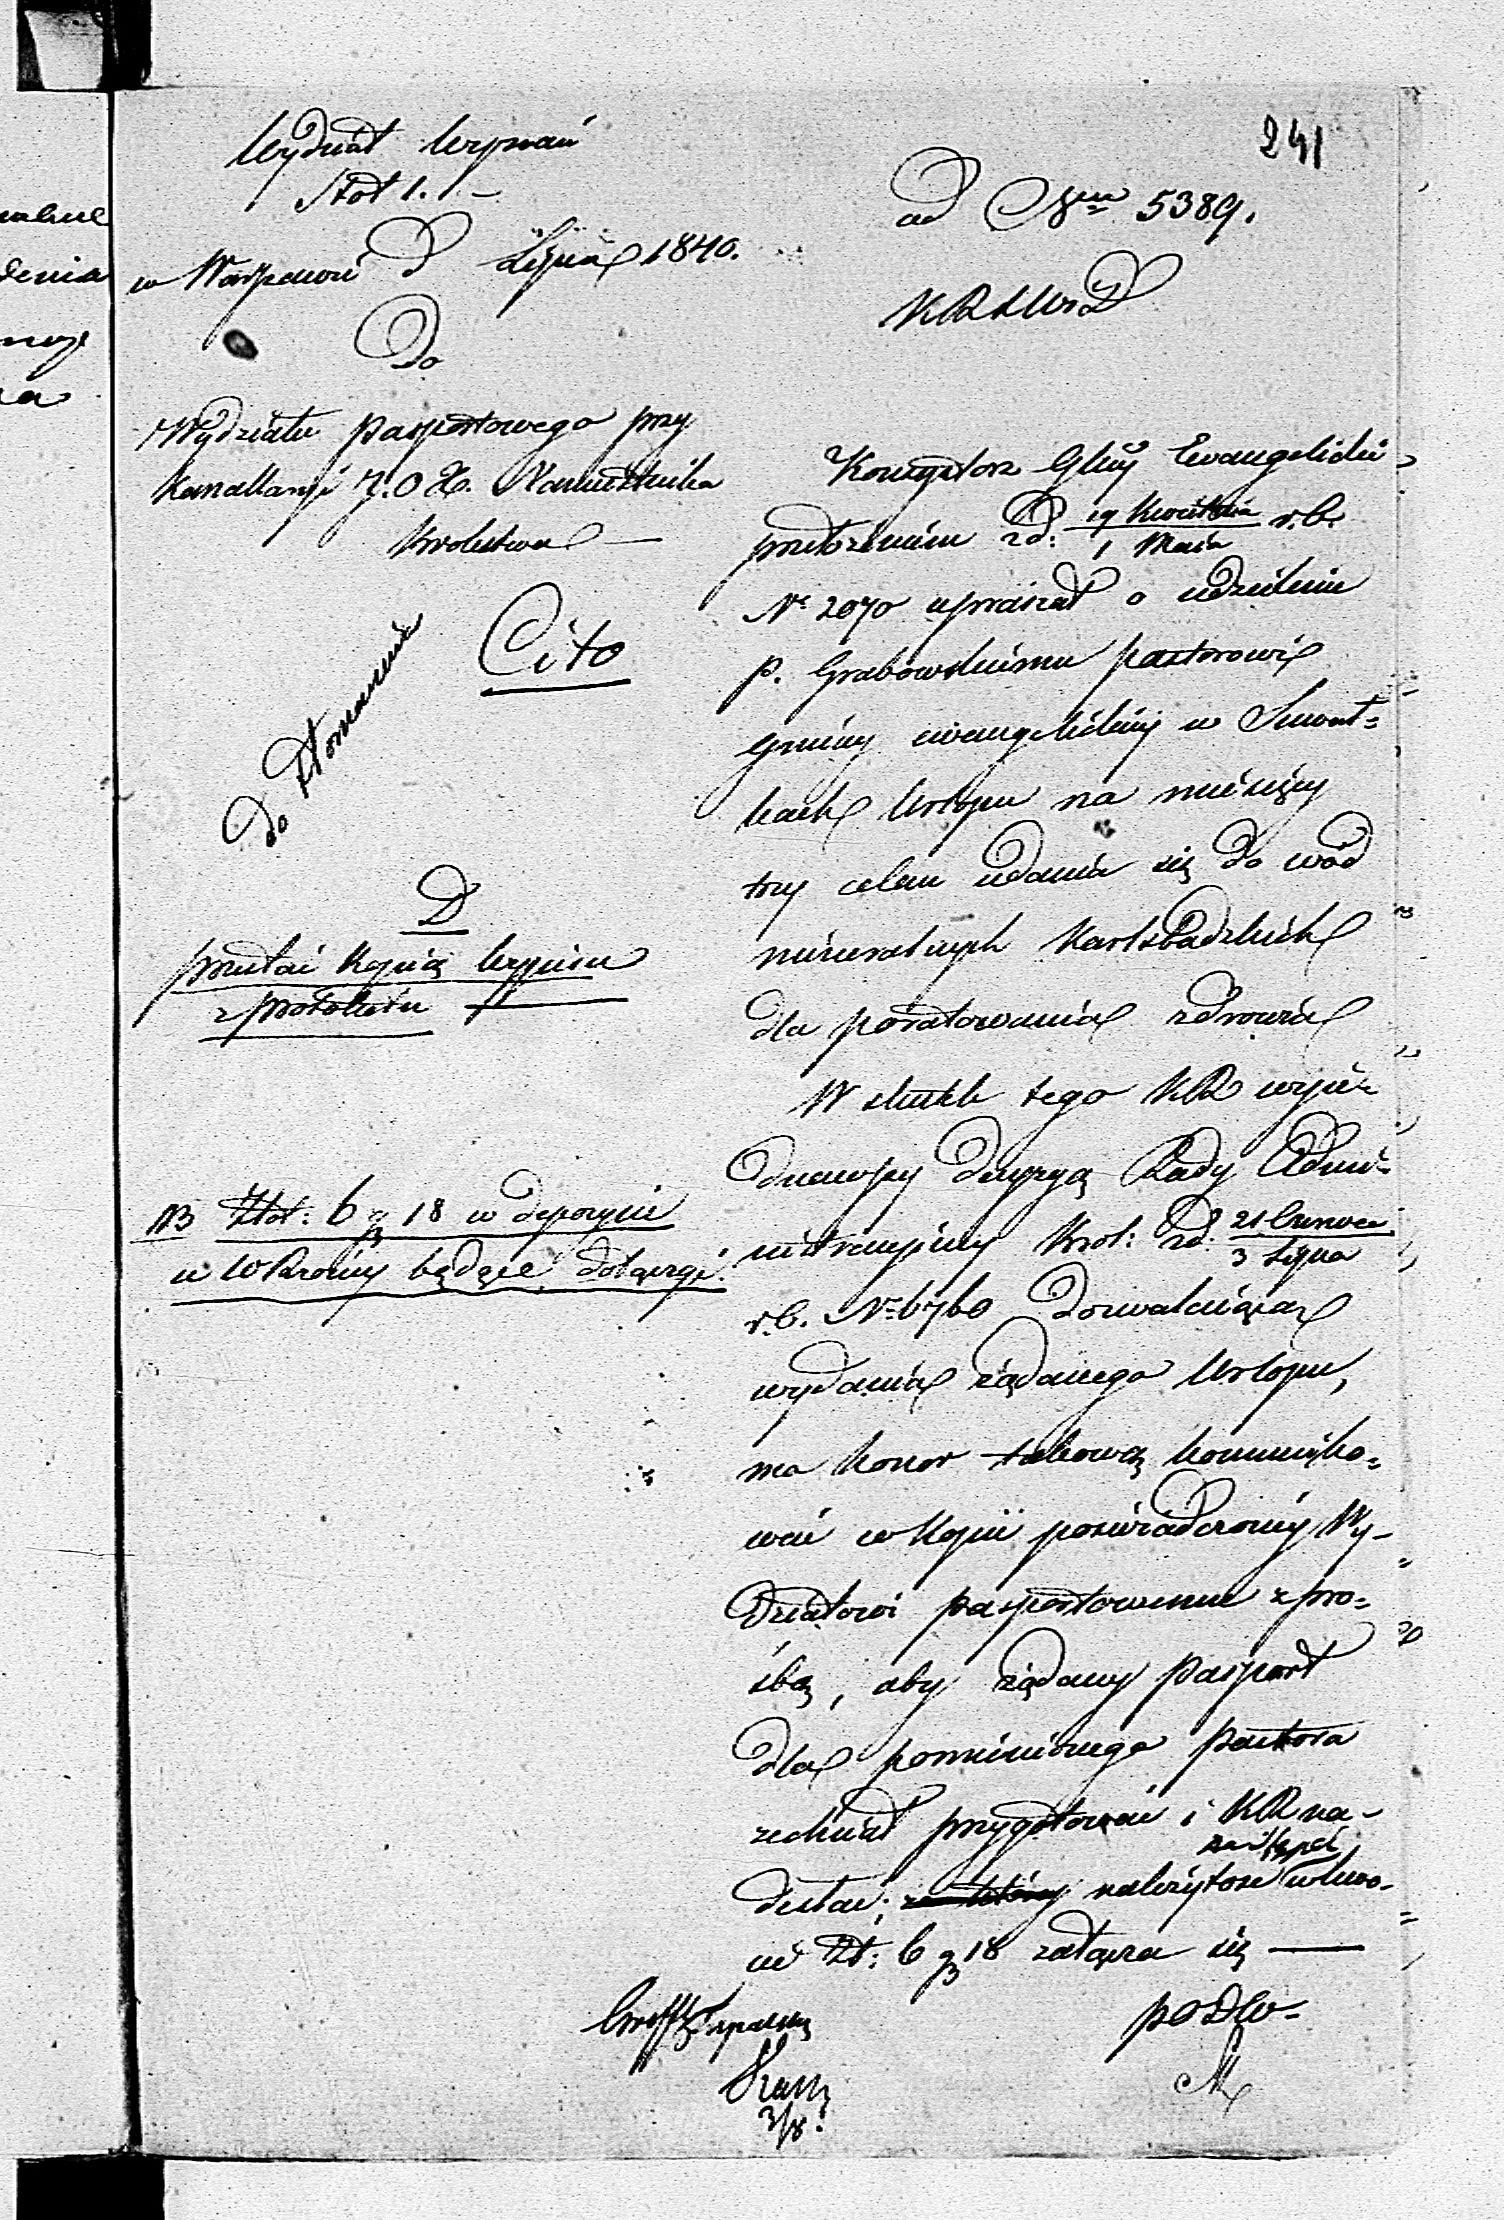 241
Wydział Wyznań
Stół 1.
w Warszawie d Lipca 1840.
Do
Wydziału Paszportowego przy
Kancellaryi J.O.X. Namiestnika
Królestwa
Cito
Do
D
przesłać kopią
z protokułu
NB Złot: 6 g 18 w depozycie
u będące dołączyć.
ad Num 5389.
KRSWiD
Konsystorz Glny Ewangelicki
przełożeniem z d: 19 Kwietnia / 1 Maia r.b.
Nr 2070 upraszał o udzielenie
P. Grabowskiemu pastorowi
Gminy ewangelickiey w Suwał=
kach Urlopu na miesięcy
trzy celem udania się do wód
mineralnych Karlsbadzkich
dla poratowania zdrowia
W skutek tego KR wyie=
dnawszy decyzyą Rady Admi=
nistracyiney Król: z d: 21 Czerwca / 3 Lipca
r.b. Nr 6760 dozwalaiącą
wydania żądanego Urlopu,
ma honor takową kommuniko=
wać w kopii poświadczoney Wy=
działowi paszportowemu z pro=
śbą, aby żądany Pasport
dla pomienionego Pastora
zechciał przygotować i KR na=
desłać; za który należytość
Zł: 6 g 18 załącza się